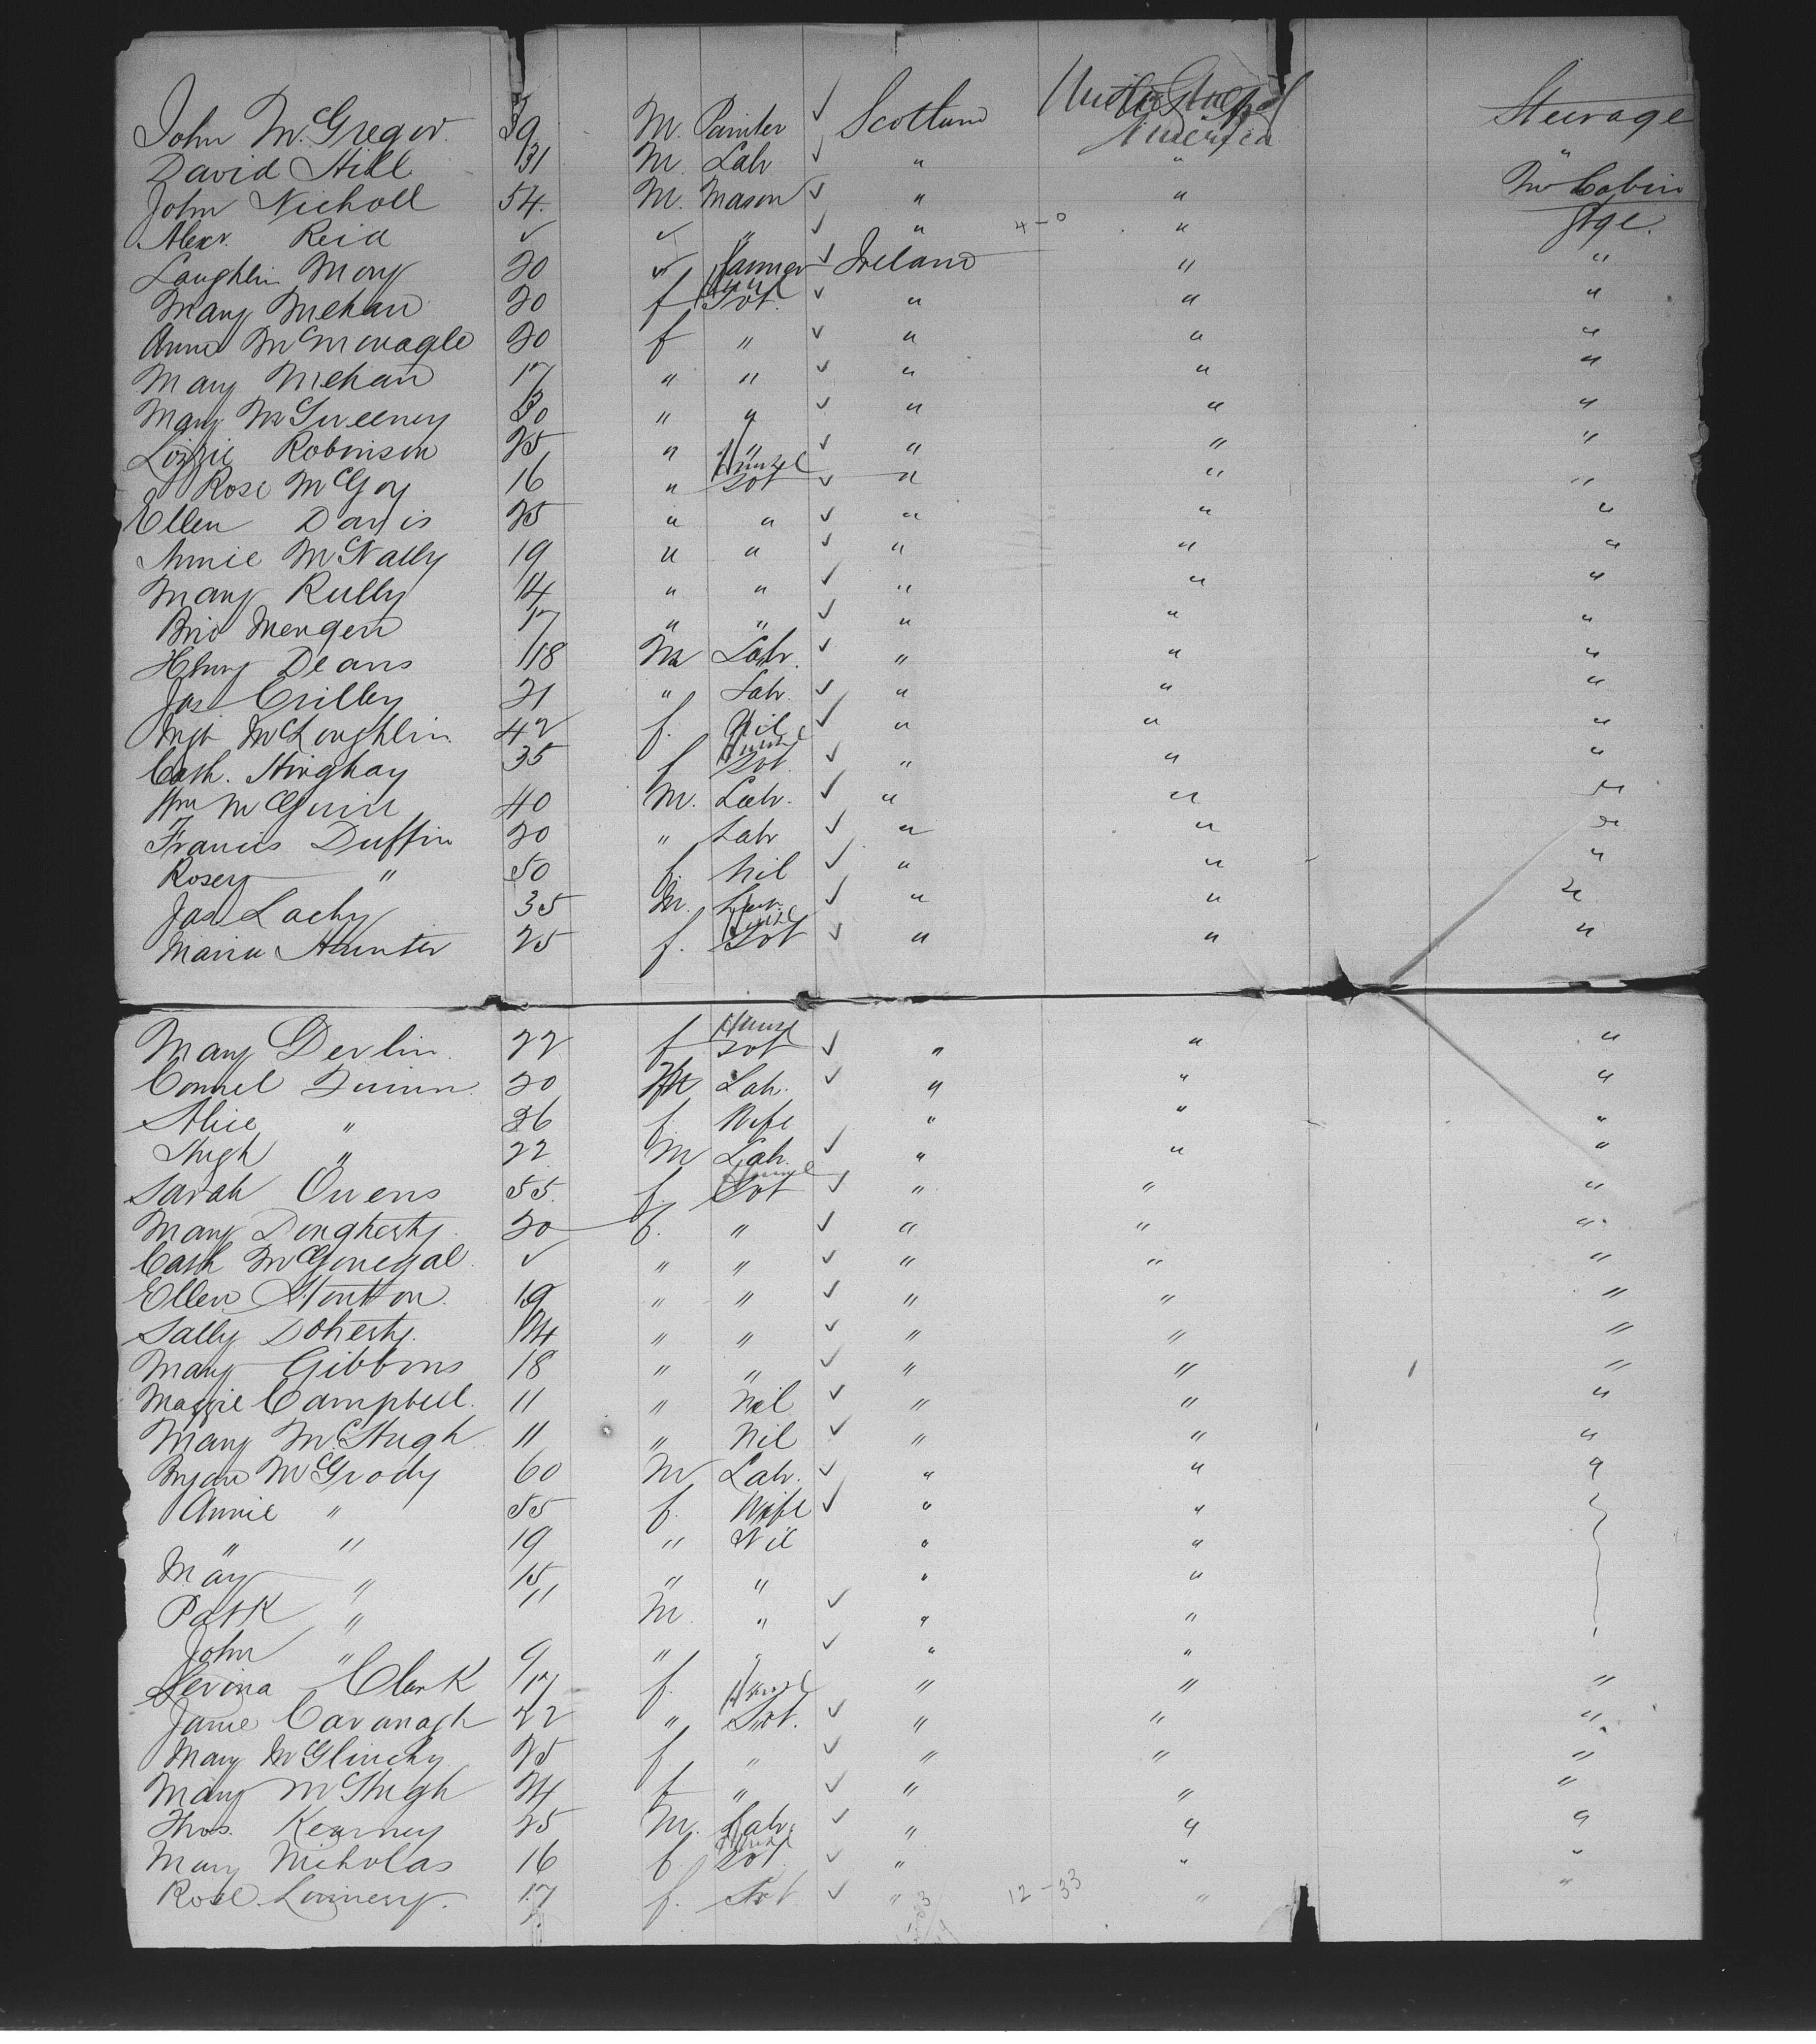 John McGregor 39 M. Painter ✓ Scotland United States of America Steerage
David Hill 31 M. Labr ✓ " " "
John Nicholl 54. M. Mason ✓ " " Int Cabin
Alexr. Reid ✓ ✓ " ✓ " 4-0 " Stge.
Loughlin Mony 20 ✓ Farmer ✓ Ireland " "
Mary Mehan 20 f Svt. ✓ " " "
Anna McMonagle 20 f " ✓ " " "
Mary Mehan 17 " " ✓ " " "
Mary McSweeney 30 " " ✓ " " "
Lizzie Robinson 25 " " ✓ " " "
Rose McGoy 16 " House Svt ✓ " " "
Ellen Davis 25 " " ✓ " " "
Annie McNally 19 " " ✓ " " "
Mary Kelly 14 " " ✓ " " "
Brid Mergen 17 " " ✓ " " "
Henry Deans 18 M Labr. ✓ " " "
Jas Crilley 21 " Labr. ✓ " " "
Mgt McLoughlin 42 f. Nil ✓ " " "
Cath. 35 f House Svt. ✓ " " "
Wm McGuire 40 M. Labr. ✓ " " "
Francis Duffin 20 " Labr ✓ " " "
Rosey " 50 f. Nil ✓ " " "
Jas Lachy 35 M. Labr. ✓ " " "
Maria Hunter 25 f. House Svt ✓ " " "
Mary Devlin. 22 f House Svt ✓ " " "
Connel Quinn. 20 M Labr. ✓ " " "
Alice " 26 f. Wife " " "
Hugh " 22 M Labr. ✓ " " "
Sarah Owens 55. f. House Svt ✓ " " "
Mary Dougherty. 20 f. " ✓ " " "
Cath McGonegal. ✓ " " ✓ " " "
Ellen Stonton. 19 " " ✓ " " "
Sally Doherty. 14 " " ✓ " " "
Mary Gibbons 18 " " ✓ " " "
Maggie Campbell. 11 " Nil ✓ " " "
Mary McHugh 11 " Nil ✓ " " "
Bryan McGrody 60 M Labr. ✓ " " "
Annie " 55 f. Wife ✓ " "
" " 19 " Nil " "
May " 15 " " " "
Patk " 11 M. " ✓ " "
John " 9 " " ✓ " "
Levina Clark 17 f. House " " "
Janie Cavanagh 22 " Svt. ✓ " " "
Mary McGlinchy 25 f " ✓ " " "
Mary McHugh 24 f " ✓ " " "
Thos. Kearney 25 M. Labr. ✓ " " "
Mary Nicholas 16 f. House Svt ✓ " " "
Rose 17 f. Svt ✓ " 12-33 " "